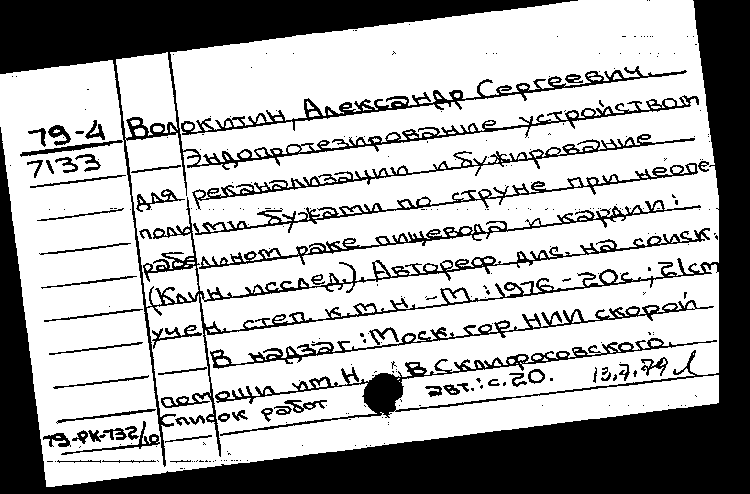 79-4 Волокитин, Александр Сергеевич.
7133 Эндопротезирование устройством
для реканализации и бужирование
полыми бужами по струне при неопе-
рабельном раке пищевода и кардии:
(Клин. исслед.). Автореф. дис. на соиск.
учен. степ. к.м.н. - М.: 1976. - 20с.; 21см
В надзаг.: Моск. гор. НИИ скорой
помощи им. Н. В. Склифосовского.
Список работ авт.: с. 20. 13.7.79
79-РК-732/10